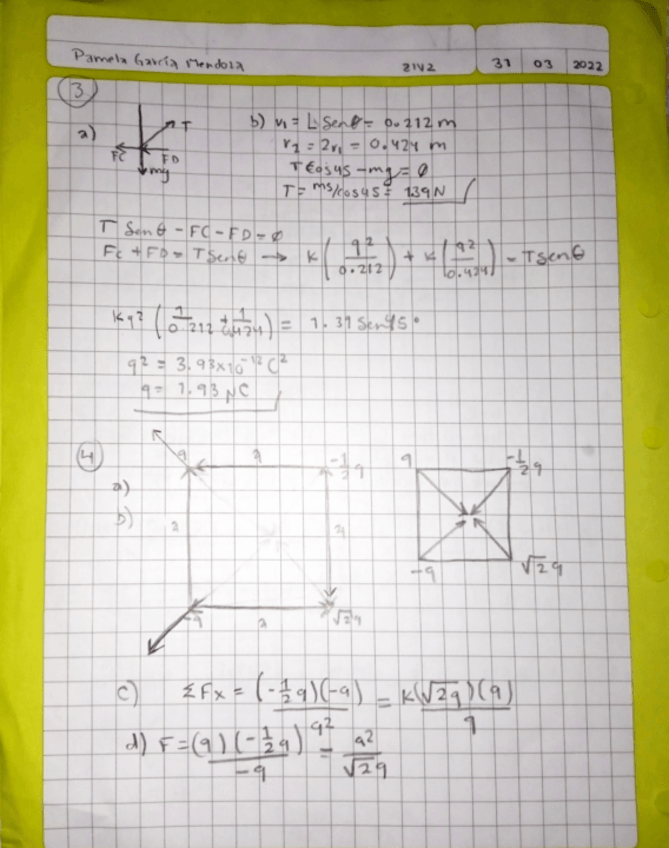 Pamela García Mendoza 2IV2 31 03 2022
3
a) T FC FD mg
b) r1 = L Senθ = 0.212 m
r2 = 2r1 = 0.424 m
T Cos45 - mg = 0
T = mg/cos45 = 1.39 N
T Senθ - FC - FD = 0
Fc + FD = T Senθ → K (q2 / 0.212) + K (q2 / 0.424) = T senθ
Kq2 (1/0.212 + 1/0.424) = 1.39 Sen45°
q2 = 3.93x10-12 C2
q = 1.93 μC
4
a)
b)
q a -1/2 q
a a
-q a √2q
q -1/2 q
-q √2q
c) ΣFx = (-1/2 q)(-q) / q2 = K(√2q)(q) / q
d) F = (q)(-1/2 q) / -q = q2 / √2q